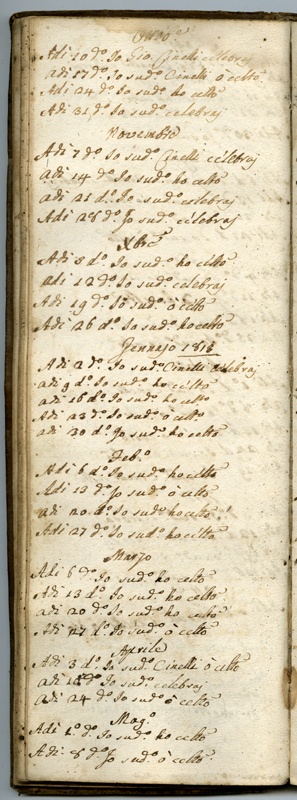 Ott.ᵉ
Adì 10 d.º Io Gio. Cinelli celebraj
Adì 17 d.º Io sud.º Cinelli ò celto
Adì 24 d.º Io sud.º ho celto
Adì 31 d.º Io sud.º celebraj
Novembre
Adì 7 d.º Io sud.º Cinelli celebraj
adì 14 d.º Io sud.º ho celto
adì 21 d.º Io sud.º celebraj
Adì 28 d.º Jo sud.º celebraj
Xbre
Adì 8 d.º Io sud.º ho celto
adì 12 d.º Io sud.º celebraj
Adì 19 d.º Io sud.º ò celto
Adì 26 d.º Io sud.º ho celto
Jennajo
Adì 2 d.º Io sud.º Cinelli celebraj
adì 9 d.º Io sud.º ho celto
adì 16 d.º Io sud.º ho celto
Adì 23 d.º Io sud.º ò celto
adì 30 d.º Jo sud.º ho celto
Feb.º
Adì 6 d.º Io sud.º ho celto
Adì 13 d.º Jo sud.º ò celto
adì 20 d.º Io sud.º ho celto
Adì 27 d.º Io sud.º ho celto
Marzo
Adì 6 d.º Io sud.º ho celto
Adì 13 d.º Io sud.º ho celto
adì 20 d.º Io sud.º ho celto
Adì 27 d.º Io sud.º ò celto
Aprile
Adì 3 d.º Io sud.º Cinelli ò celto
adì d.º Io sud.º celebraj
Adì 24 d.º Io sud.º ò celto
Mag.º
Adì 1.º d.º Io sud.º ho celto
Adì 8 d.º Jo sud.º ò celto